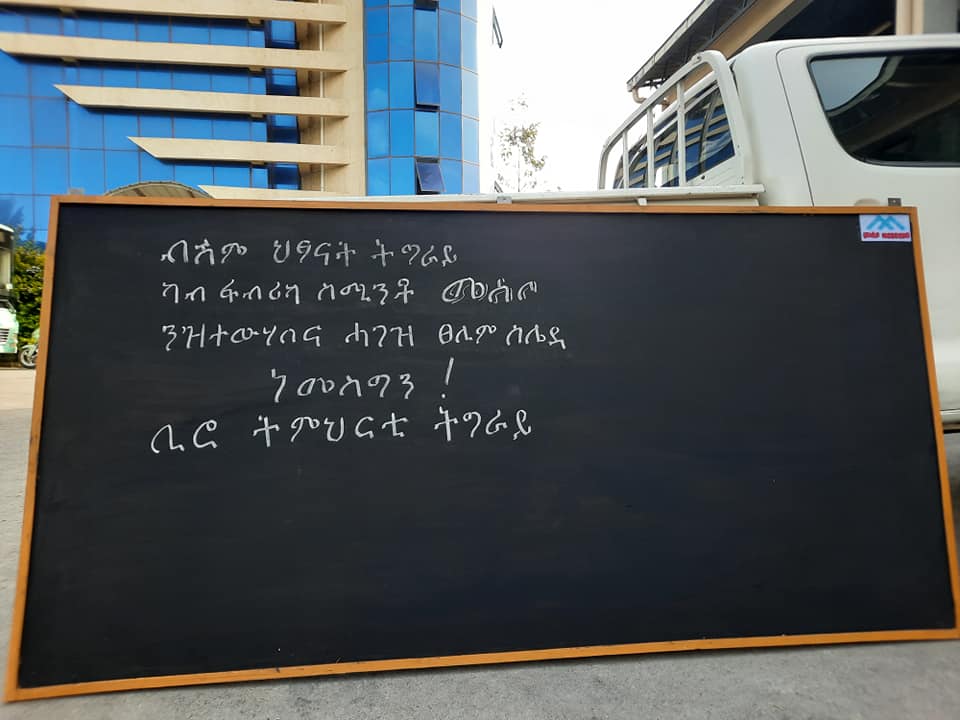 ብሽም ህፃናት ትግራይ
ካብ ፋብሪካ ስሚንቶ መሰቦ
ንዝተውሃበና ሓገዝ ፀሊም ሰሌዳ
ነመስግን !
ቢሮ ትምህርቲ ትግራይ